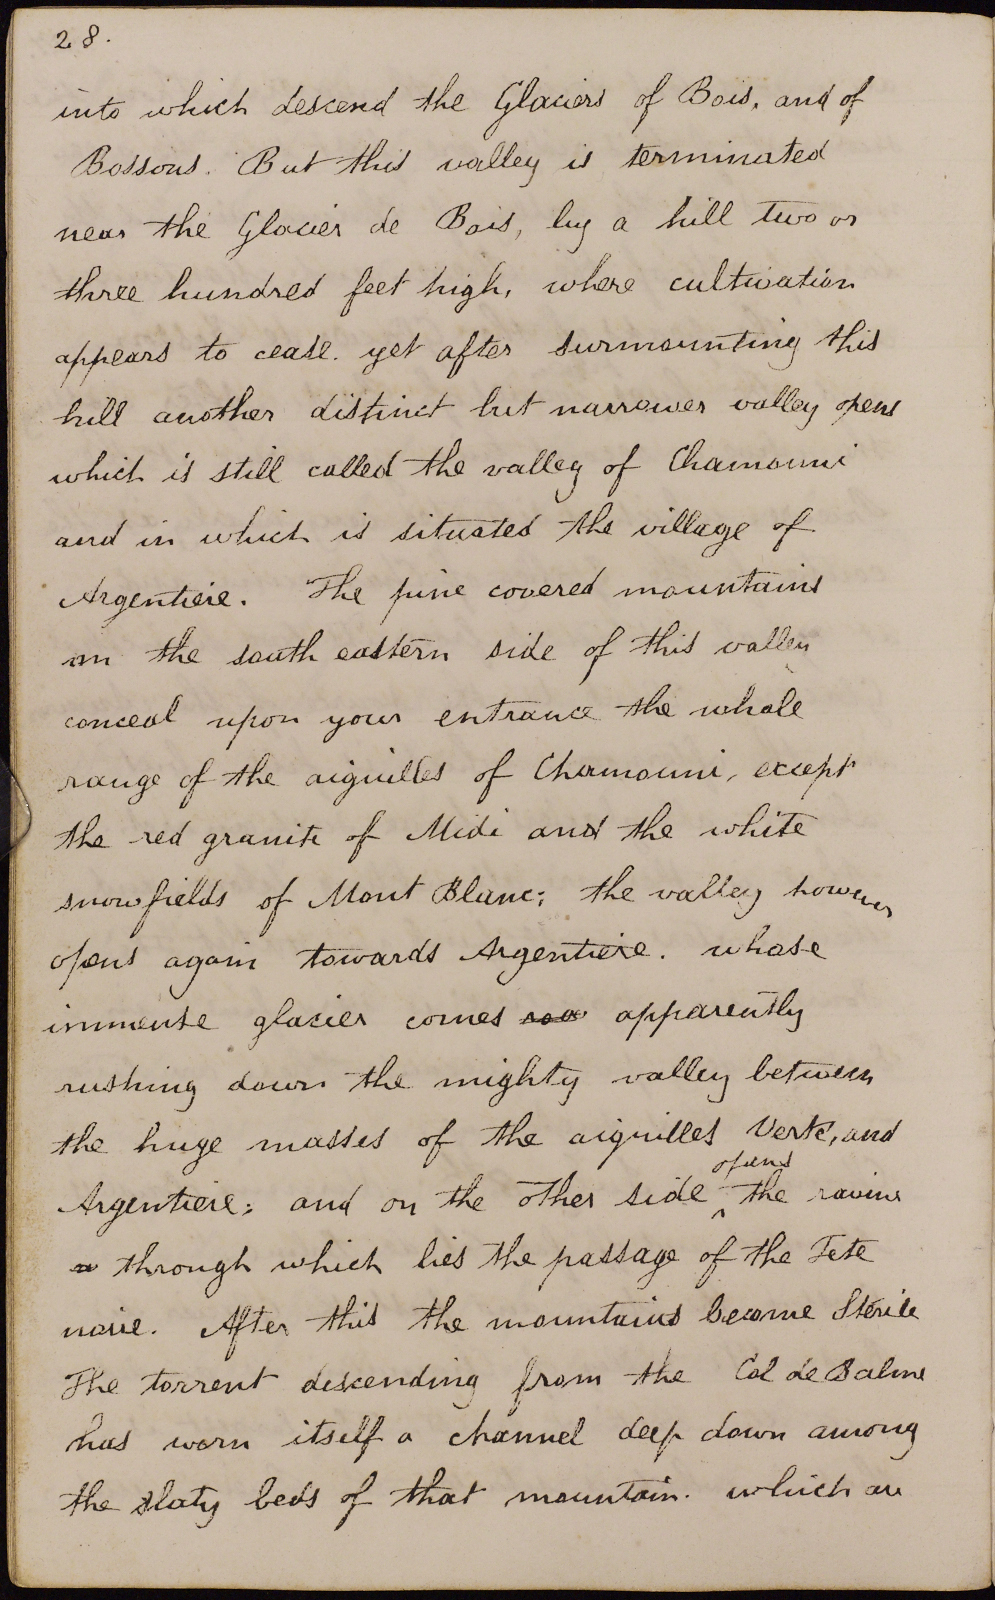 28.
into which descend the Glaciers of Bois, and of
Bossons. But this valley is terminated
near the Glacier de Bois, by a hill two or
three hundred feet high, where cultivation
appears to cease. yet after surmounting this
hill another distinct but narrower valley opens
which is still called the valley of Chamouni
and in which is situated the village of
Argentiere. The pine covered mountains
on the south eastern side of this valley
conceal upon your entrance the whole
range of the aiguilles of Chamouni, except
the red granite of Midi and the white
snowfields of Mont Blanc; the valley however
opens again towards Argentiere. whose
immense glacier comes apparently
rushing down the mighty valley between
the huge masses of the aiguilles Verte, and
opens
Argentiere; and on the other side ^ the ravine
through which lies the passage of the Tete
noire. After this the mountains become Sterile
The torrent descending from the Col de Balme
has worn itself a channel deep down among
the slaty beds of that mountain. which are